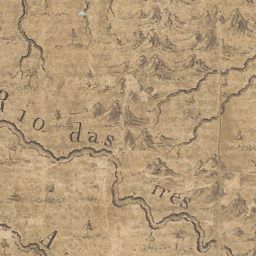 Rio das tres
A